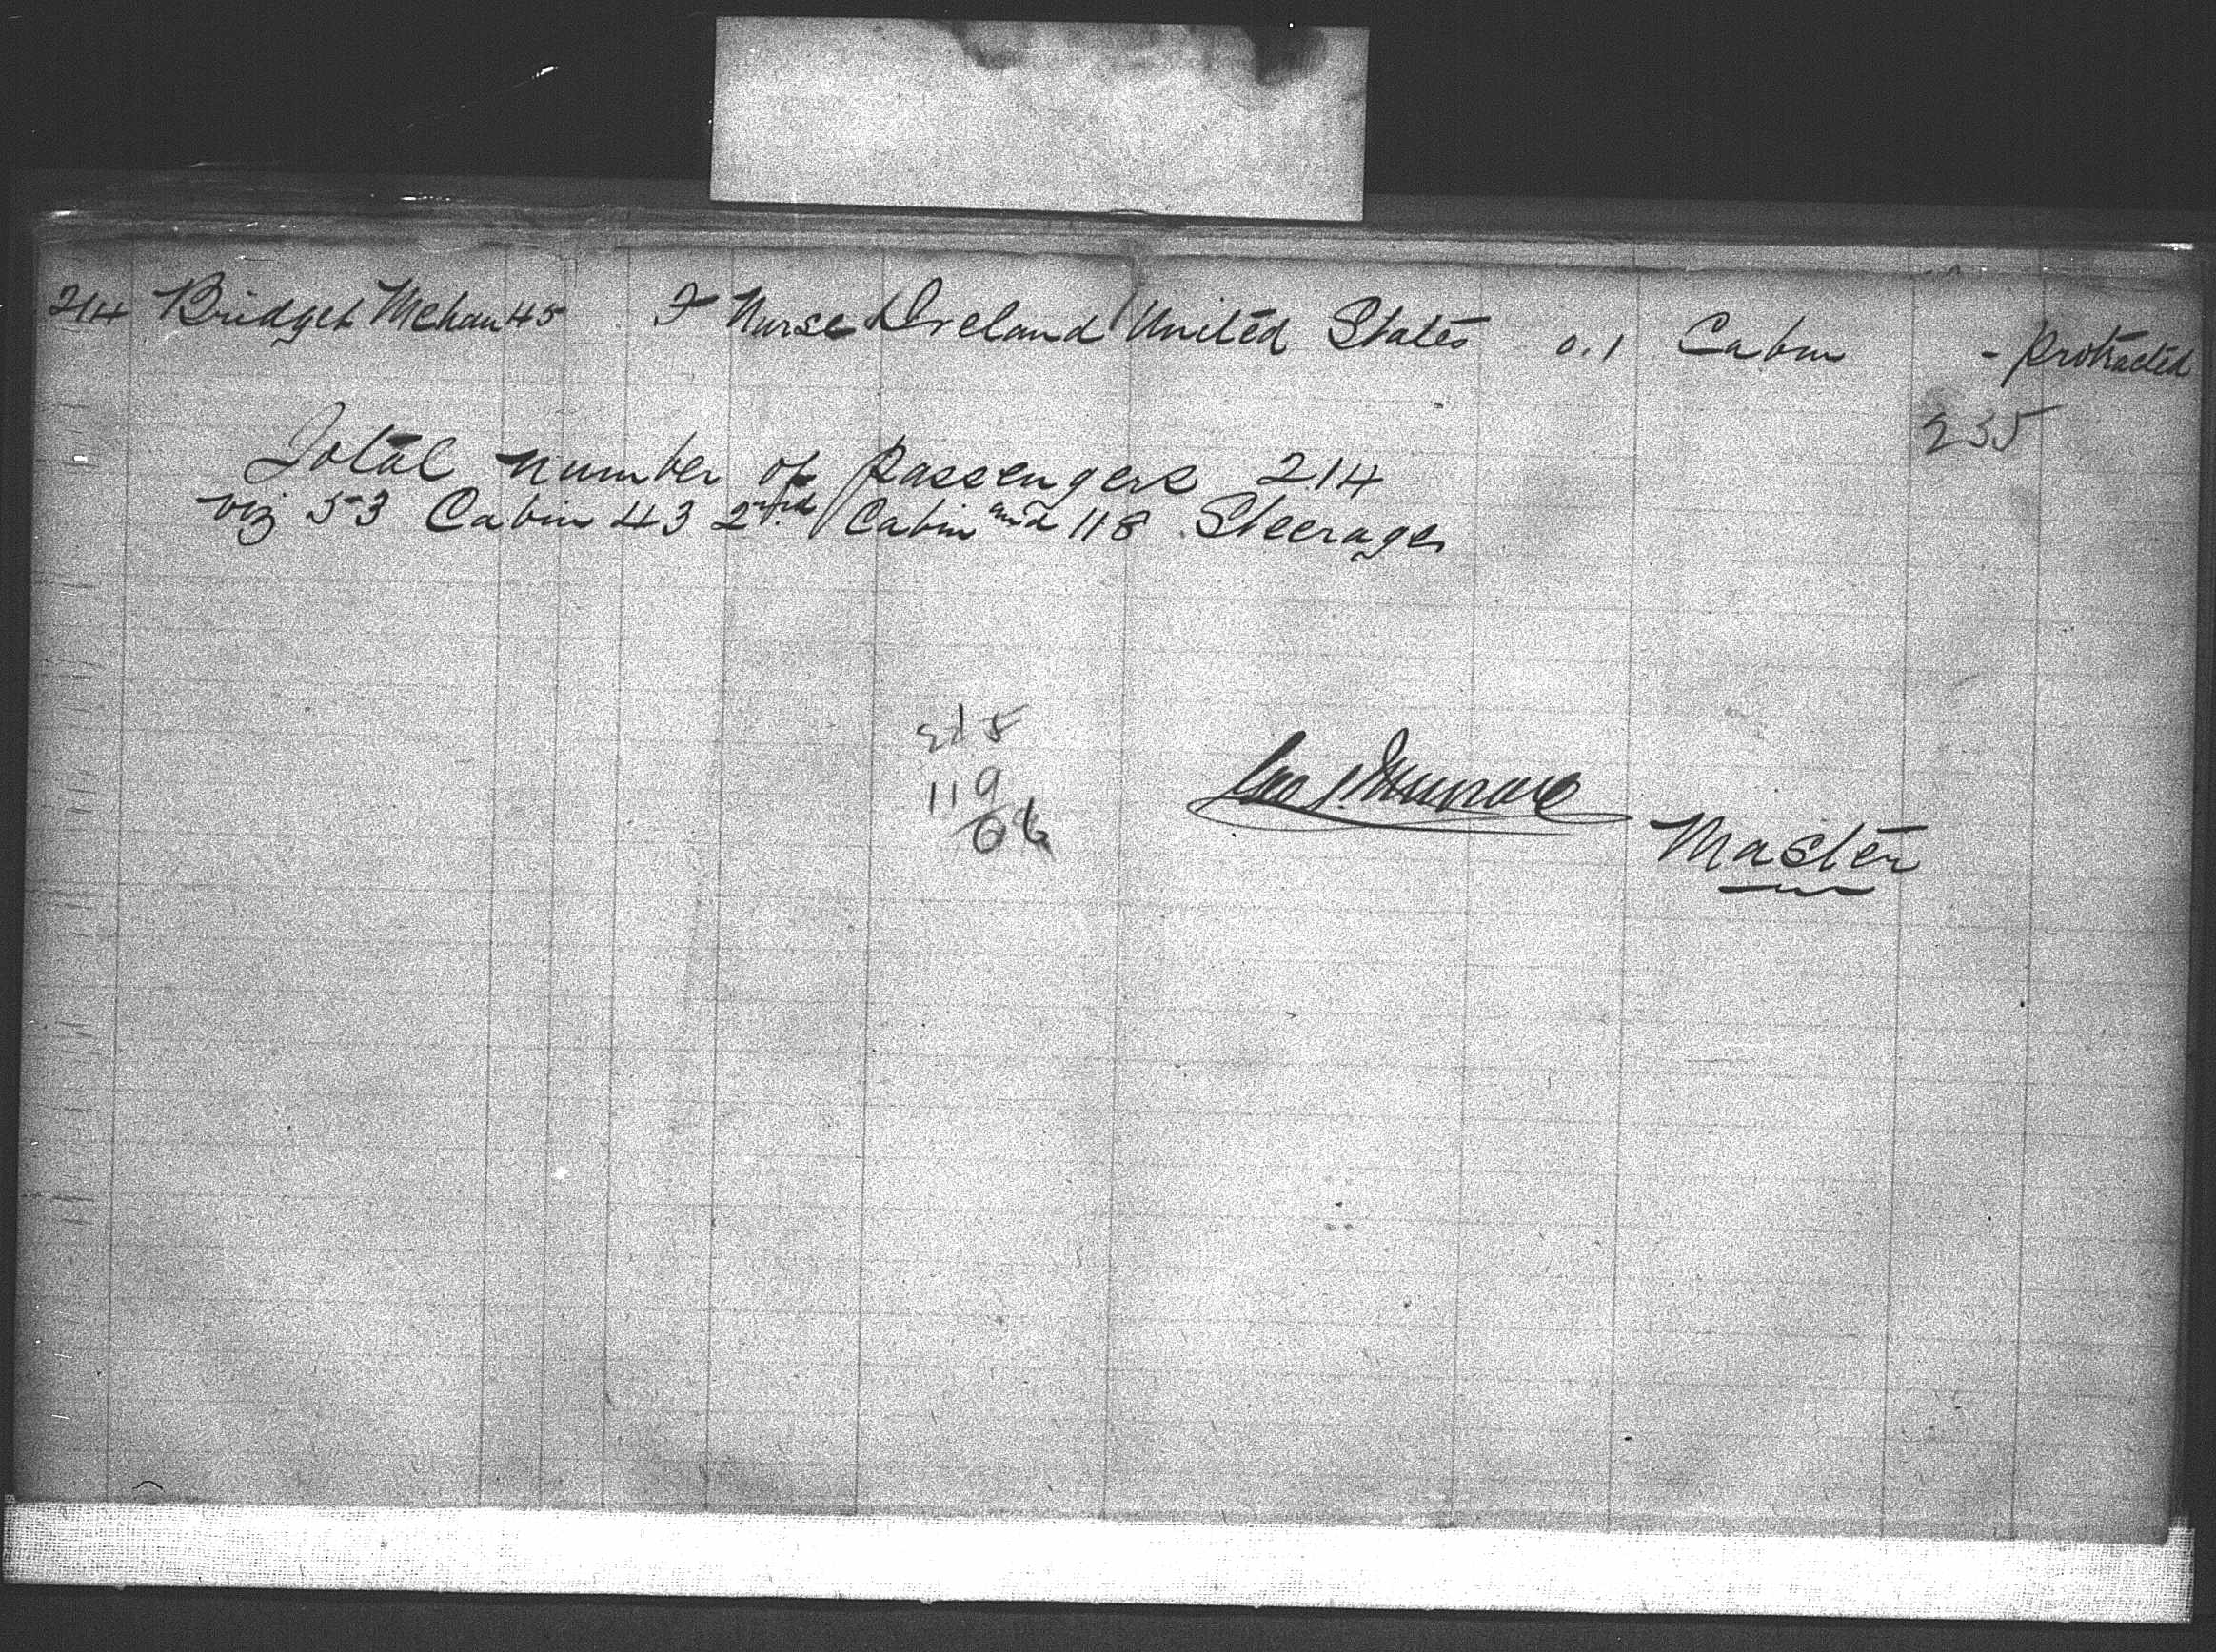 214 Bridget Mehan 45 F Nurse Ireland United States 0.1 Cabin - Protracted
235
Total number of passengers 214
viz 53 Cabin 43 2nd Cabin and 118 Steerage
119
Master